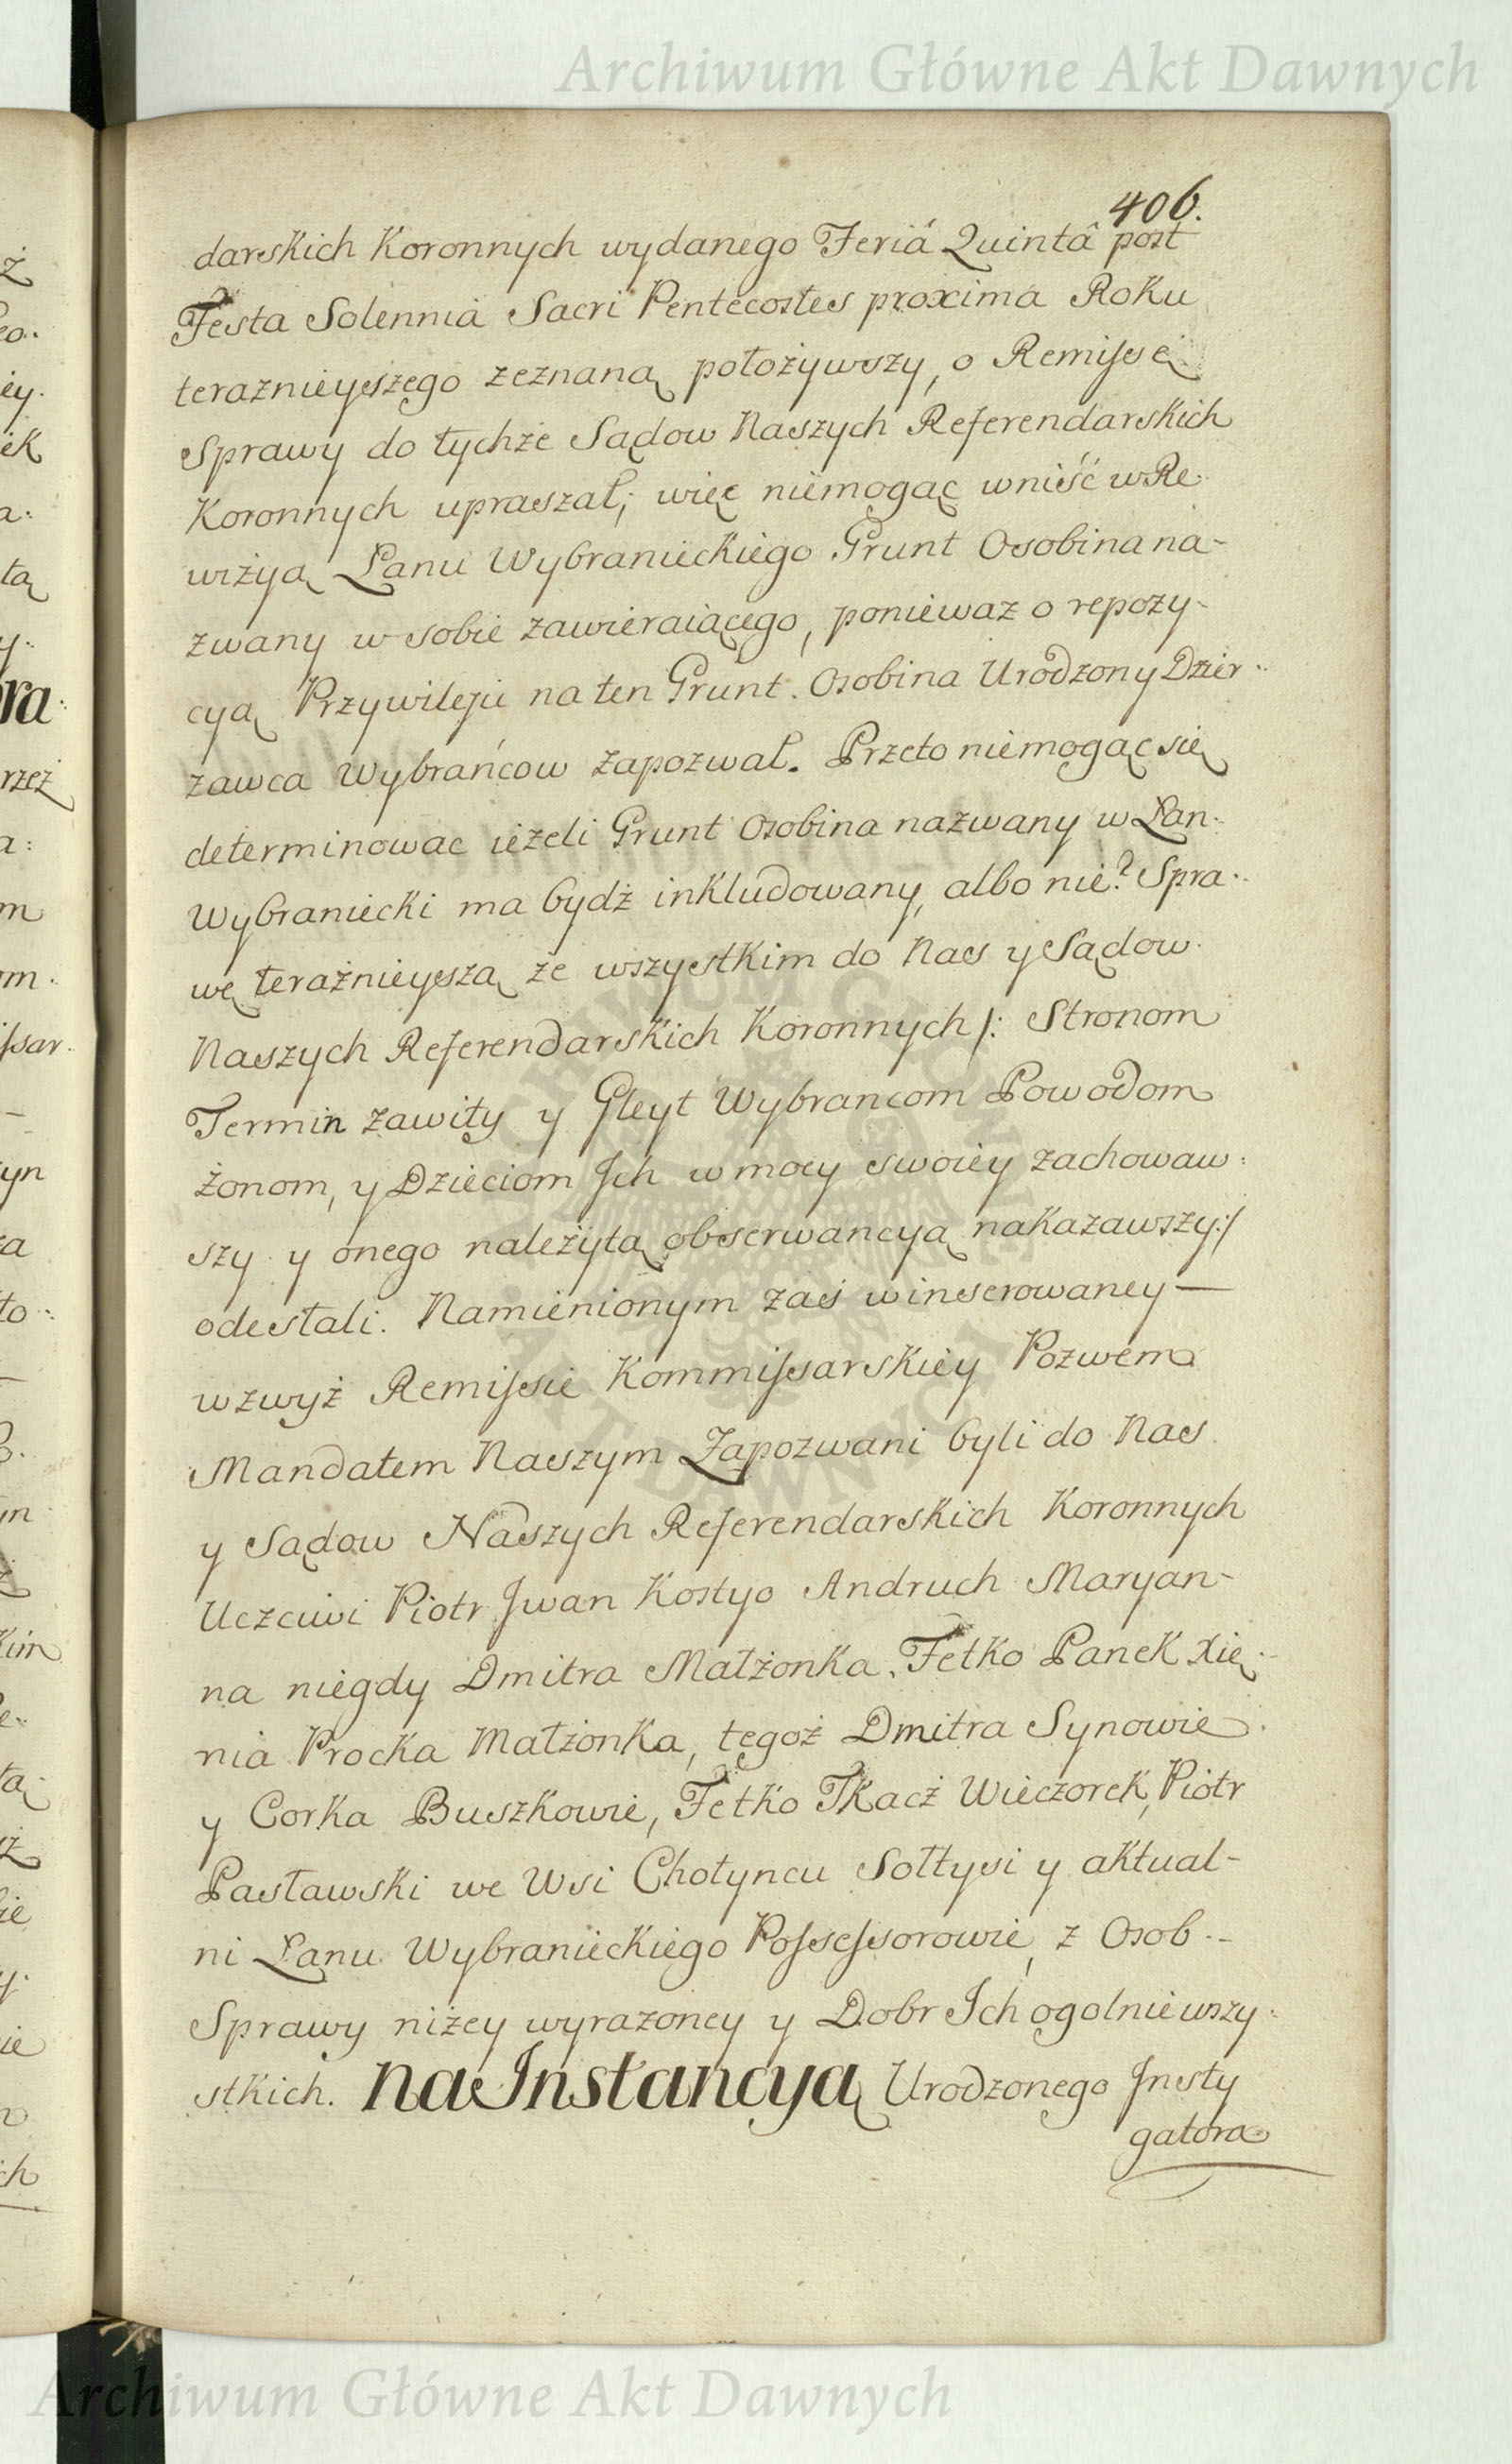 Archiwum Główne Akt Dawnych
406.
darskich Koronnych wydanego Feriá Quintâ post
Festa Solennia Sacri Pentecostes proxima Roku
teraznieyszego zeznaną położywszy, o Remisse
Sprawy do tychże Sądow Naszych Referendarskich
Koronnych upraszał; więc niemogąc wniść w Re
wizyą Łanu Wybranieckiego Grunt Osobina na-
zwany w sobie zawieraiącego, ponieważ o repozy-
cyą Przywileju na ten Grunt. Osobina Urodzony Dzier-
zawca Wybrańcow zapozwał. Przeto niemogąc się
determinowac ieżeli Grunt Osobina nazwany w Łan-
Wybraniecki ma bydż inkludowany, albo nie? Spra-
wę terażnieyszą ze wszystkim do Nas y Sądow
Naszych Referendarskich Koronnych /: Stronom
Termin zawity y Gleyt Wybrancom Powodom
żonom, y Dzieciom Ich w mocy swoiey zachowaw:
szy y onego należytą obserwancyą nakazawszy:/
odesłali. Namienionym zaś w inserowaney —
wzwyż Remissie Kommissarskiey Pozwem
Mandatem Naszym Zapozwani byli do Nas
y Sądow Naszych Referendarskich Koronnych
Uczciwi Piotr Jwan Kostyo Andruch Maryan-
na niegdy Dmitra Małżonka, Fetko Panek Xię-
nia Procka Małżonka, tegoż Dmitra Synowie
y Corka Buszkowie, Fetko Tkacż Wieczorek, Piotr
Pasławski we Wsi Chotyncu Sołtysi y aktual-
ni Łanu Wybranieckiego Possessorowie, z Osob--
Sprawy niżey wyrazoney y Dobr Ich ogolnie wszy:
stkich. na Instancyą Urodzonego Insty
gatora
Archiwum Główne Akt Dawnych